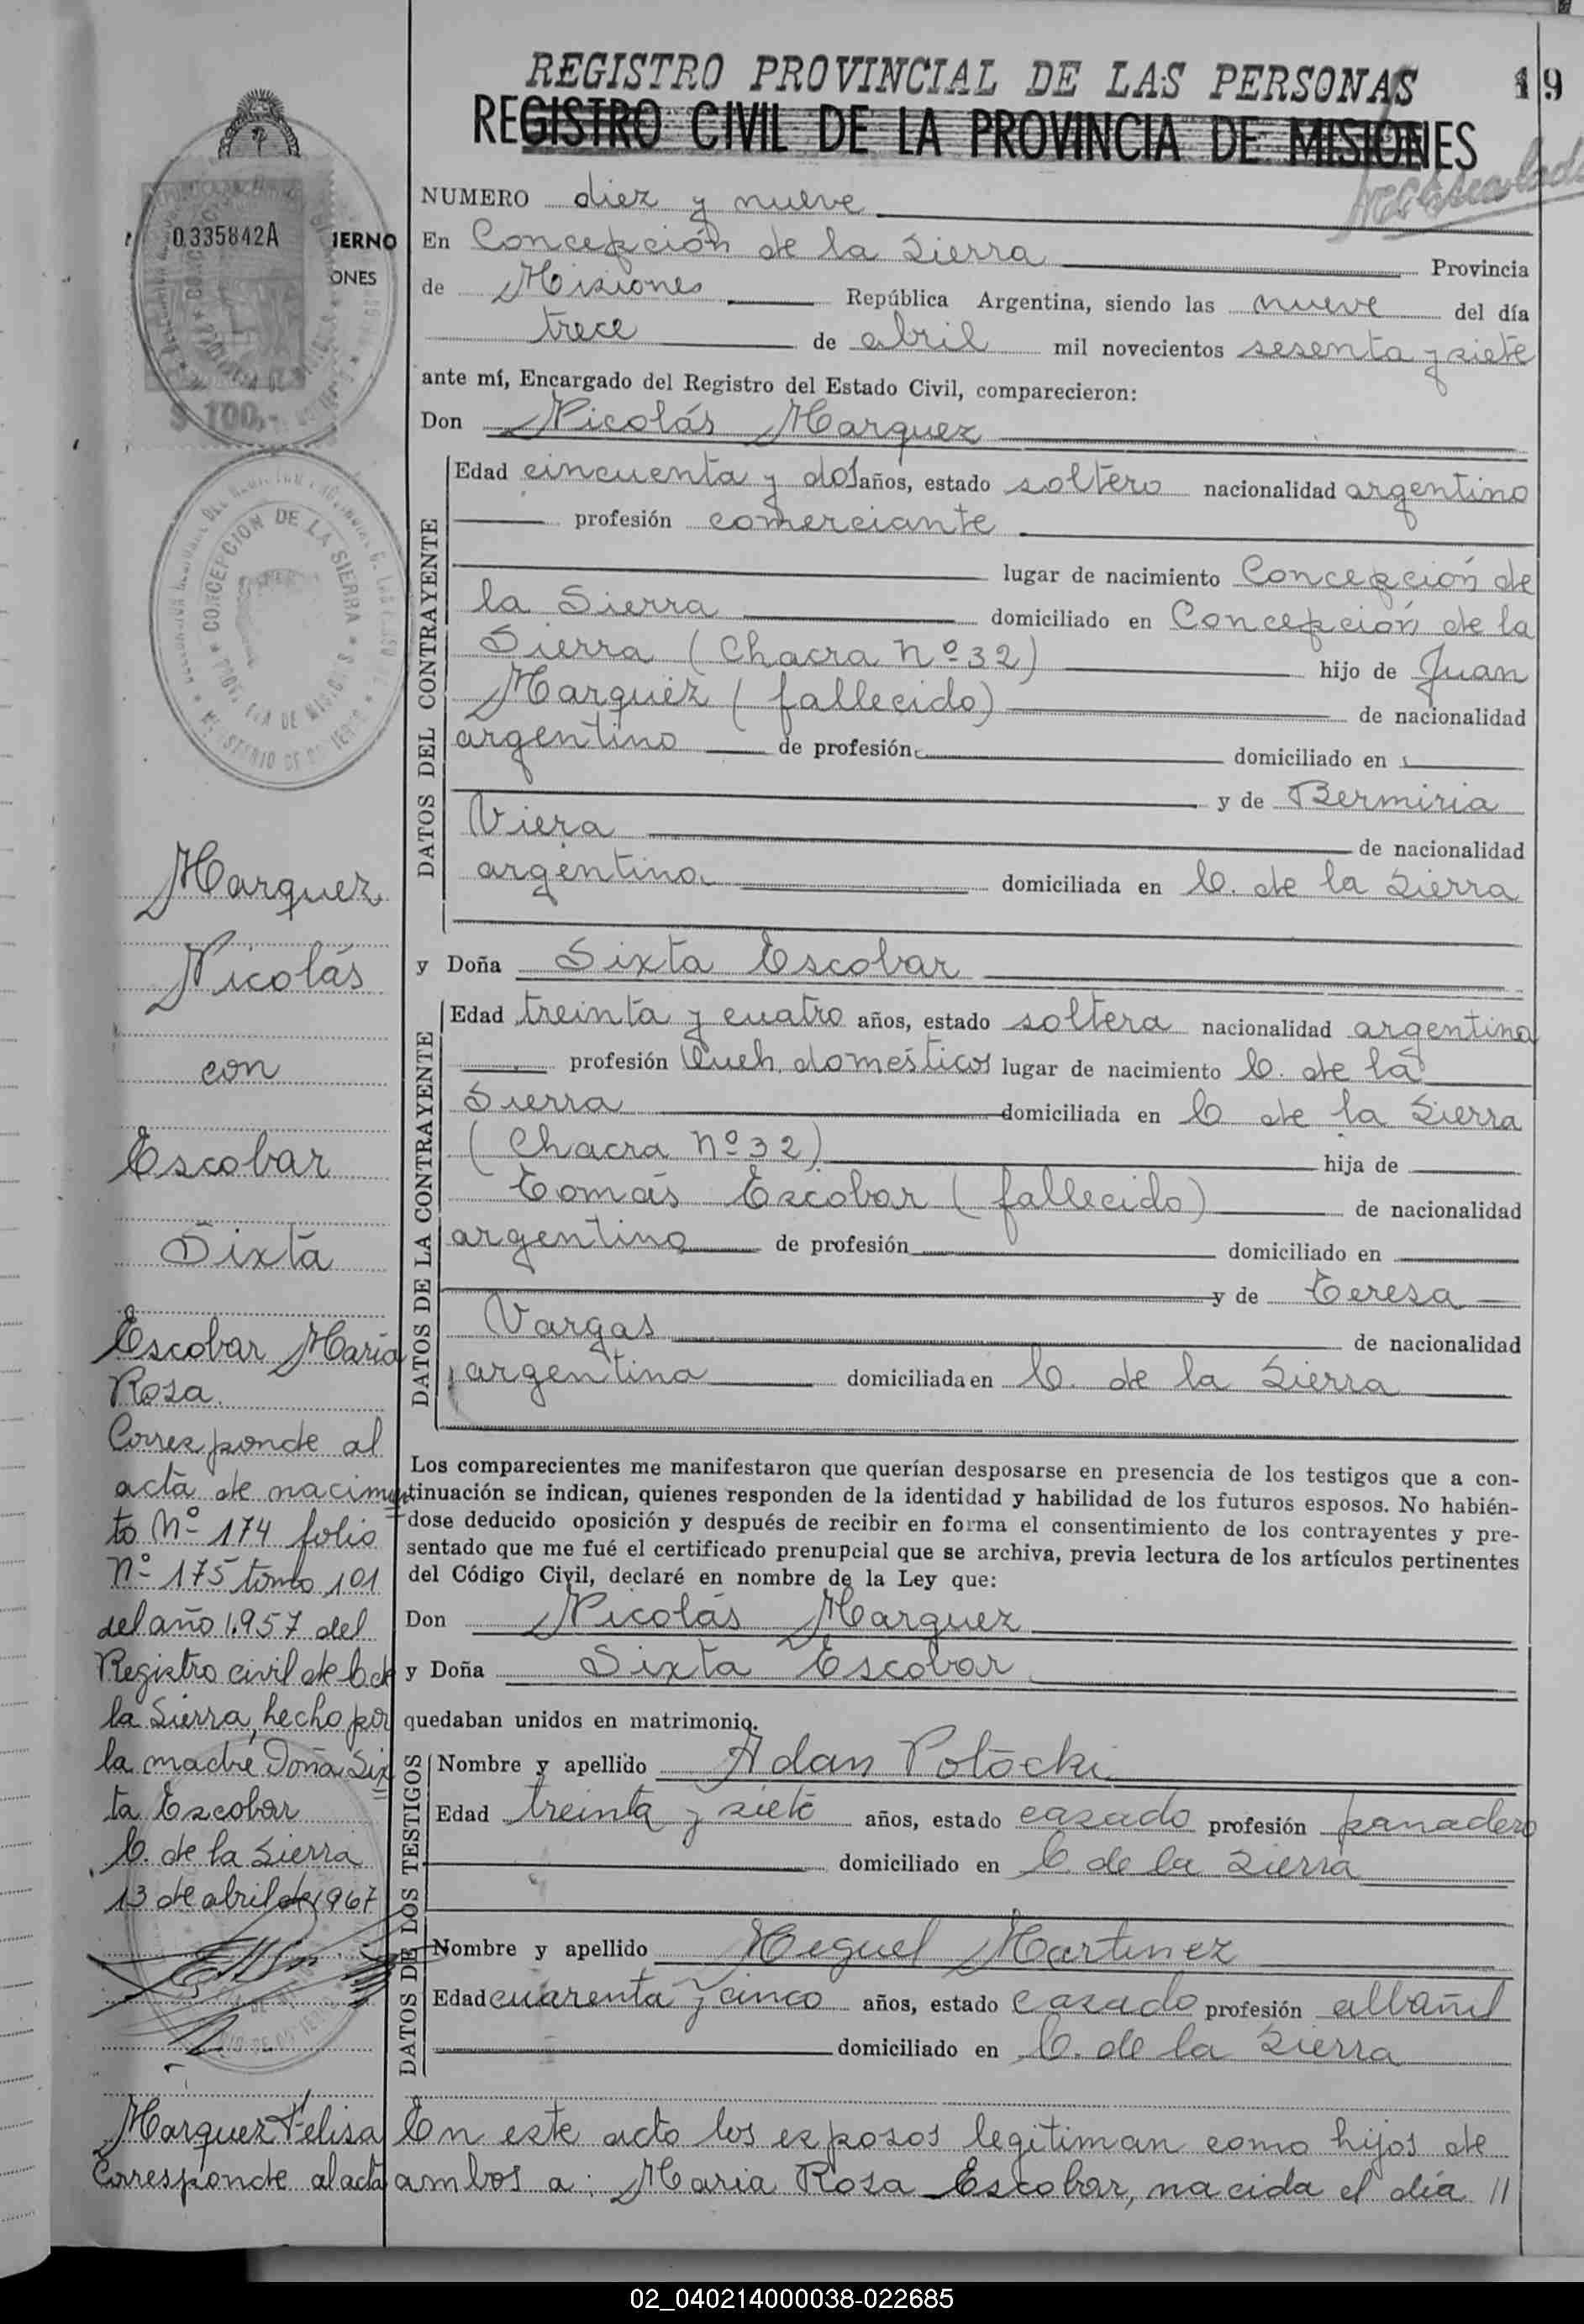 REGISTRO PROVINCIAL DE LAS PERSONAS
19
REGISTRO CIVIL DE LA PROVINCIA DE MISIONES
NUMERO diez y nueve
En Concepción de la Sierra Provincia
de Misiones República Argentina, siendo las nueve del día
trece de abril mil novecientos sesenta y siete
ante mí, Encargado del Registro del Estado Civil, comparecieron:
Don Nicolás Marquez
DATOS DEL CONTRAYENTE
Edad cincuenta y dos años, estado soltero nacionalidad argentino
profesión comerciante
lugar de nacimiento Concepción de
la Sierra domiciliado en Concepción de la
Sierra (Chacra Nº 32) hijo de Juan
Marquez (fallecido) de nacionalidad
argentino de profesión domiciliado en
y de Bermiria
Viera de nacionalidad
argentina domiciliada en C. de la Sierra
y Doña Sixta Escobar
DATOS DE LA CONTRAYENTE
Edad treinta y cuatro años, estado soltera nacionalidad argentina
profesión Queh. domésticos lugar de nacimiento C. de la
Sierra domiciliada en C de la Sierra
(Chacra Nº 32) hija de
Tomás Escobar (fallecido) de nacionalidad
argentino de profesión domiciliado en
y de Teresa
Vargas de nacionalidad
argentina domiciliada en C. de la Sierra
Los comparecientes me manifestaron que querían desposarse en presencia de los testigos que a con-
tinuación se indican, quienes responden de la identidad y habilidad de los futuros esposos. No habién-
dose deducido oposición y después de recibir en forma el consentimiento de los contrayentes y pre-
sentado que me fué el certificado prenupcial que se archiva, previa lectura de los artículos pertinentes
del Código Civil, declaré en nombre de la Ley que:
Don Nicolás Marquez
y Doña Sixta Escobar
quedaban unidos en matrimonio.
DATOS DE LOS TESTIGOS
Nombre y apellido Adan Potocki
Edad treinta y siete años, estado casado profesión panadero
domiciliado en C de la Sierra
Nombre y apellido Miguel Martinez
Edad cuarenta y cinco años, estado casado profesión albañil
domiciliado en C. de la Sierra
En este acto los esposos legitiman como hijos de
ambos a: Maria Rosa Escobar, nacida el día 11
0.335842A
IERNO
ONES
$ 100,-
CONCEPCION DE LA SIERRA
Marquez
Nicolás
con
Escobar
Sixta
Escobar María
Rosa.
Corresponde al
acta de nacimien
to Nº 174 folio
Nº 175 tomo 101
del año 1.957 del
Registro civil de C de
la Sierra, hecho por
la madre Doña Six
ta Escobar
C. de la Sierra
13 de abril de 1967
Marquez Felisa
Corresponde al acta
02_040214000038-022685